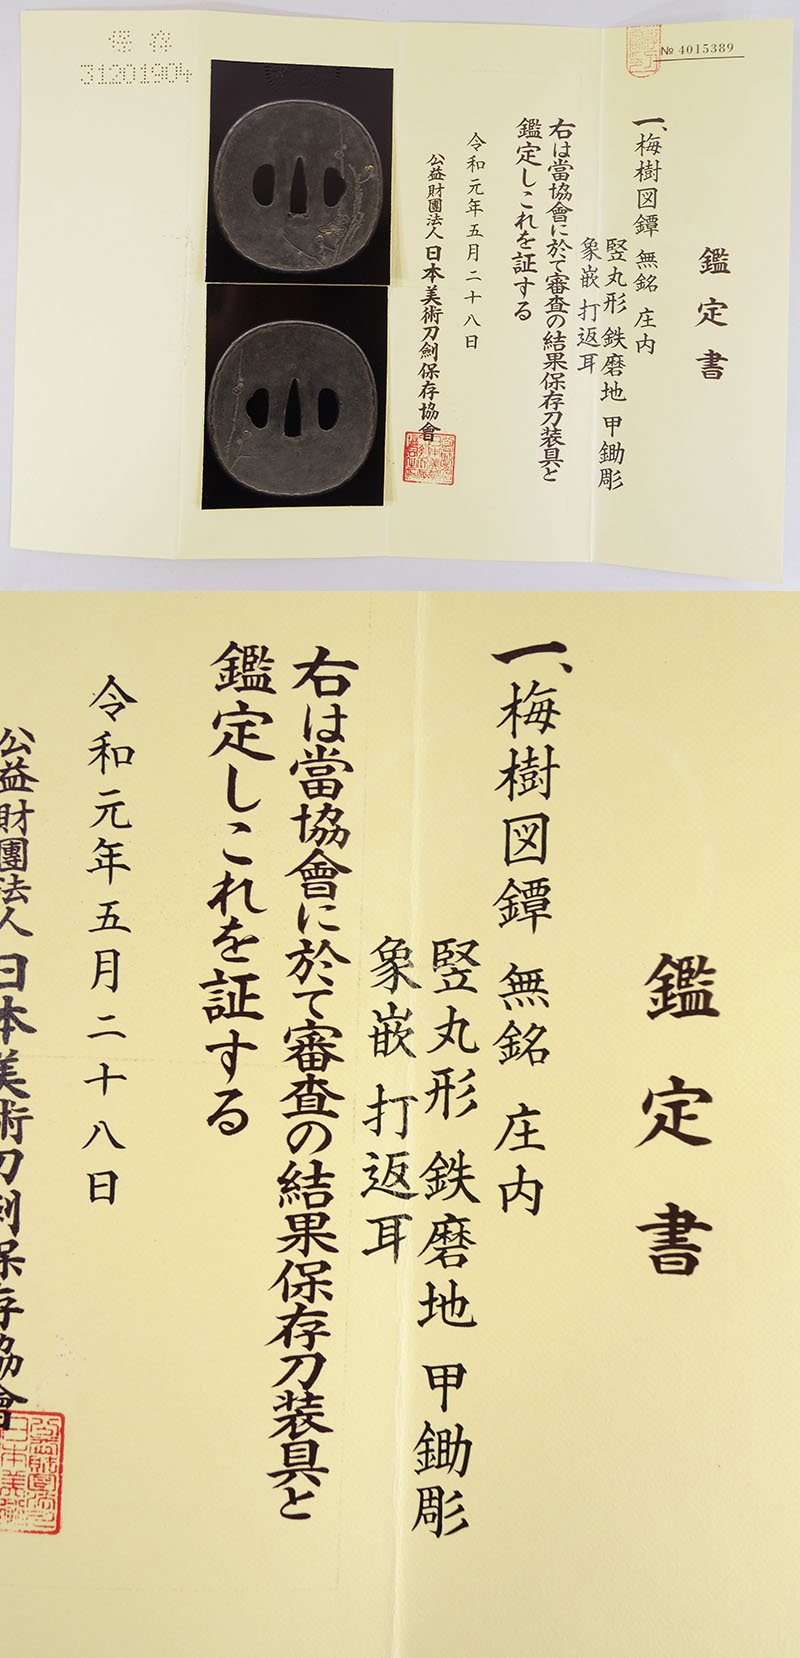 保存
31201904
№ 4015389
鑑定書
一、梅樹図鐔 無銘 庄内
竪丸形 鉄磨地 甲鋤彫
象嵌 打返耳
右は當協會に於て審査の結果保存刀装具と
鑑定しこれを証する
令和元年五月二十八日
公益財團法人 日本美術刀劍保存協會
鑑定書
一、梅樹図鐔 無銘 庄内
竪丸形 鉄磨地 甲鋤彫
象嵌 打返耳
右は當協會に於て審査の結果保存刀装具と
鑑定しこれを証する
令和元年五月二十八日
公益財團法人 日本美術刀劍保存協會